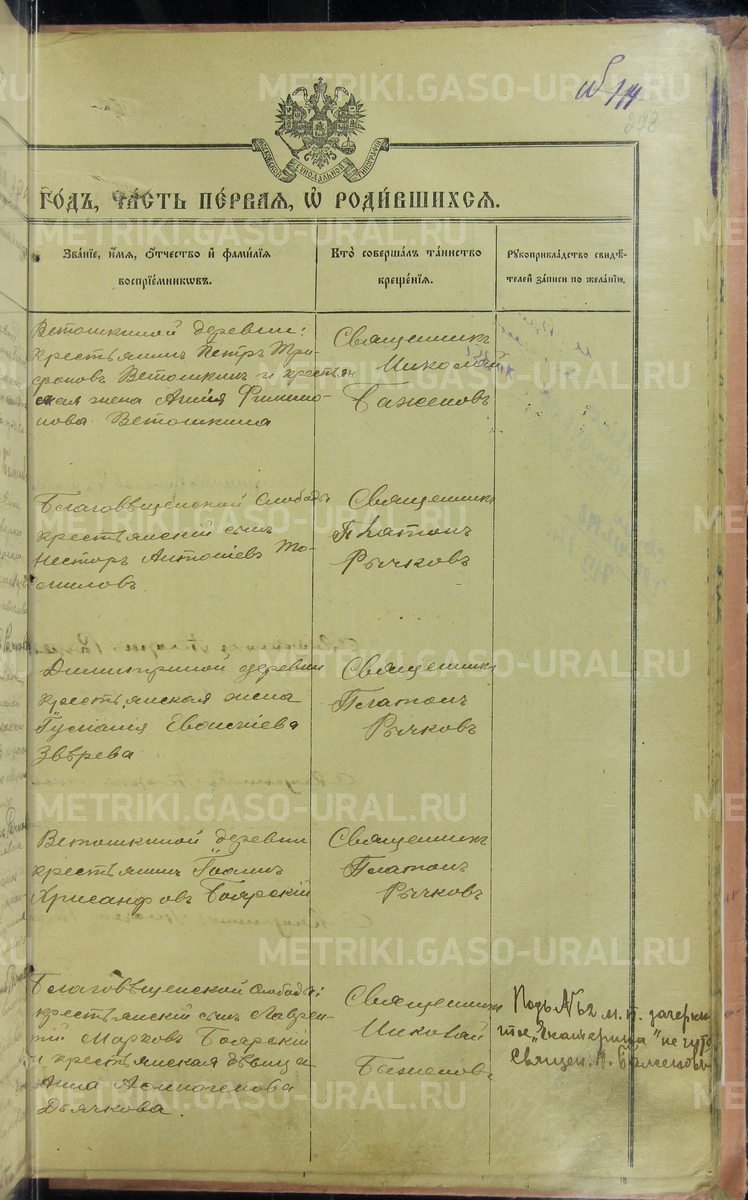 METRIKI.GASO-URAL.RU
МОСКОВСКОЙ СѴНОДАЛЬНОЙ ТИПОГРАФІИ
ГО́ДЪ, ЧА́СТЬ ПЕ́РВАЯ, Ѽ РОДИ́ВШИХСЯ.
Зва́нїе, и҆́мя, ѻ҆́тчество и҆ фами́лїя
воспрїе́мникѡвъ.
Кто̀ соверша́лъ та́инство
креще́нїя.
Рꙋкоприкла́дство свидѣ́-
телей за́писи по жела́нїю.
Ветошкиной деревни:
крестьянинъ Петръ Три-
фоновъ Ветошкинъ и крестьян
ская жена Анна Филимо-
нова Ветошкина
Священникъ
Николай
Баженовъ
Благовѣщенской Слободы
крестьянскій сынъ
Несторъ Антоніевъ То-
миловъ.
Священникъ
Платонъ
Рычковъ
деревни
крестьянская жена
Звѣрева
Священникъ
Платонъ
Рычковъ
Ветошкиной деревни
крестьянинъ Іоаннъ
Хрисанфовъ Боярскій
Священникъ
Платонъ
Рычковъ
Благовѣщенской Слободы:
крестьянскій сынъ Лаврен-
тій Марковъ Боярскій
и крестьянская дѣвица
Анна Афиногенова
Дьячкова.
Священникъ
Николай
Баженовъ
Подъ №62 м. п. зачеркн
тое „Екатерина" не чит
Священ. Н. Баженовъ
METRIKI.GASO-URAL.RU